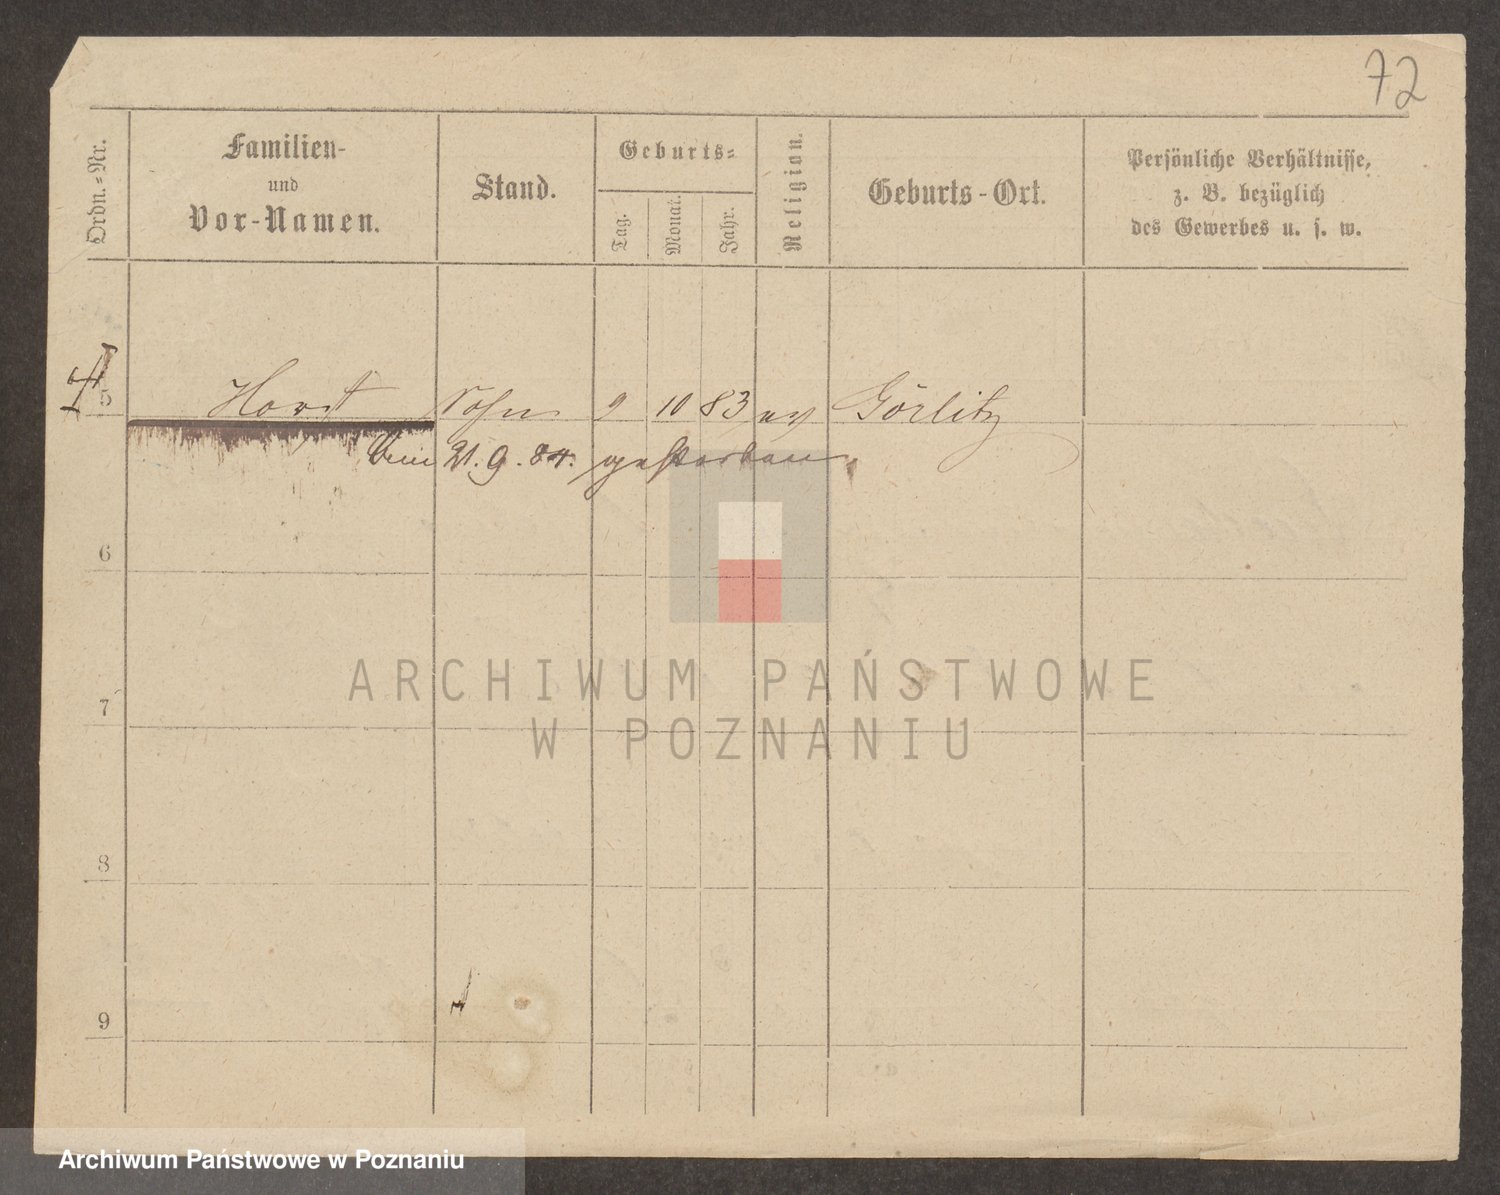 72
Ordn.-Nr.
Familien-
und
Vor-Namen.
Stand.
Geburts-
Tag.
Monat.
Jahr.
Religion.
Geburts-Ort.
Persönliche Verhältnisse,
z. B. bezüglich
des Gewerbes u. s. w.
5 Horst Sohn 9 10 83 ev Görlitz
21. 9. 84. gestorben.
6
7
8
9
ARCHIWUM PAŃSTWOWE
W POZNANIU
Archiwum Państwowe w Poznaniu